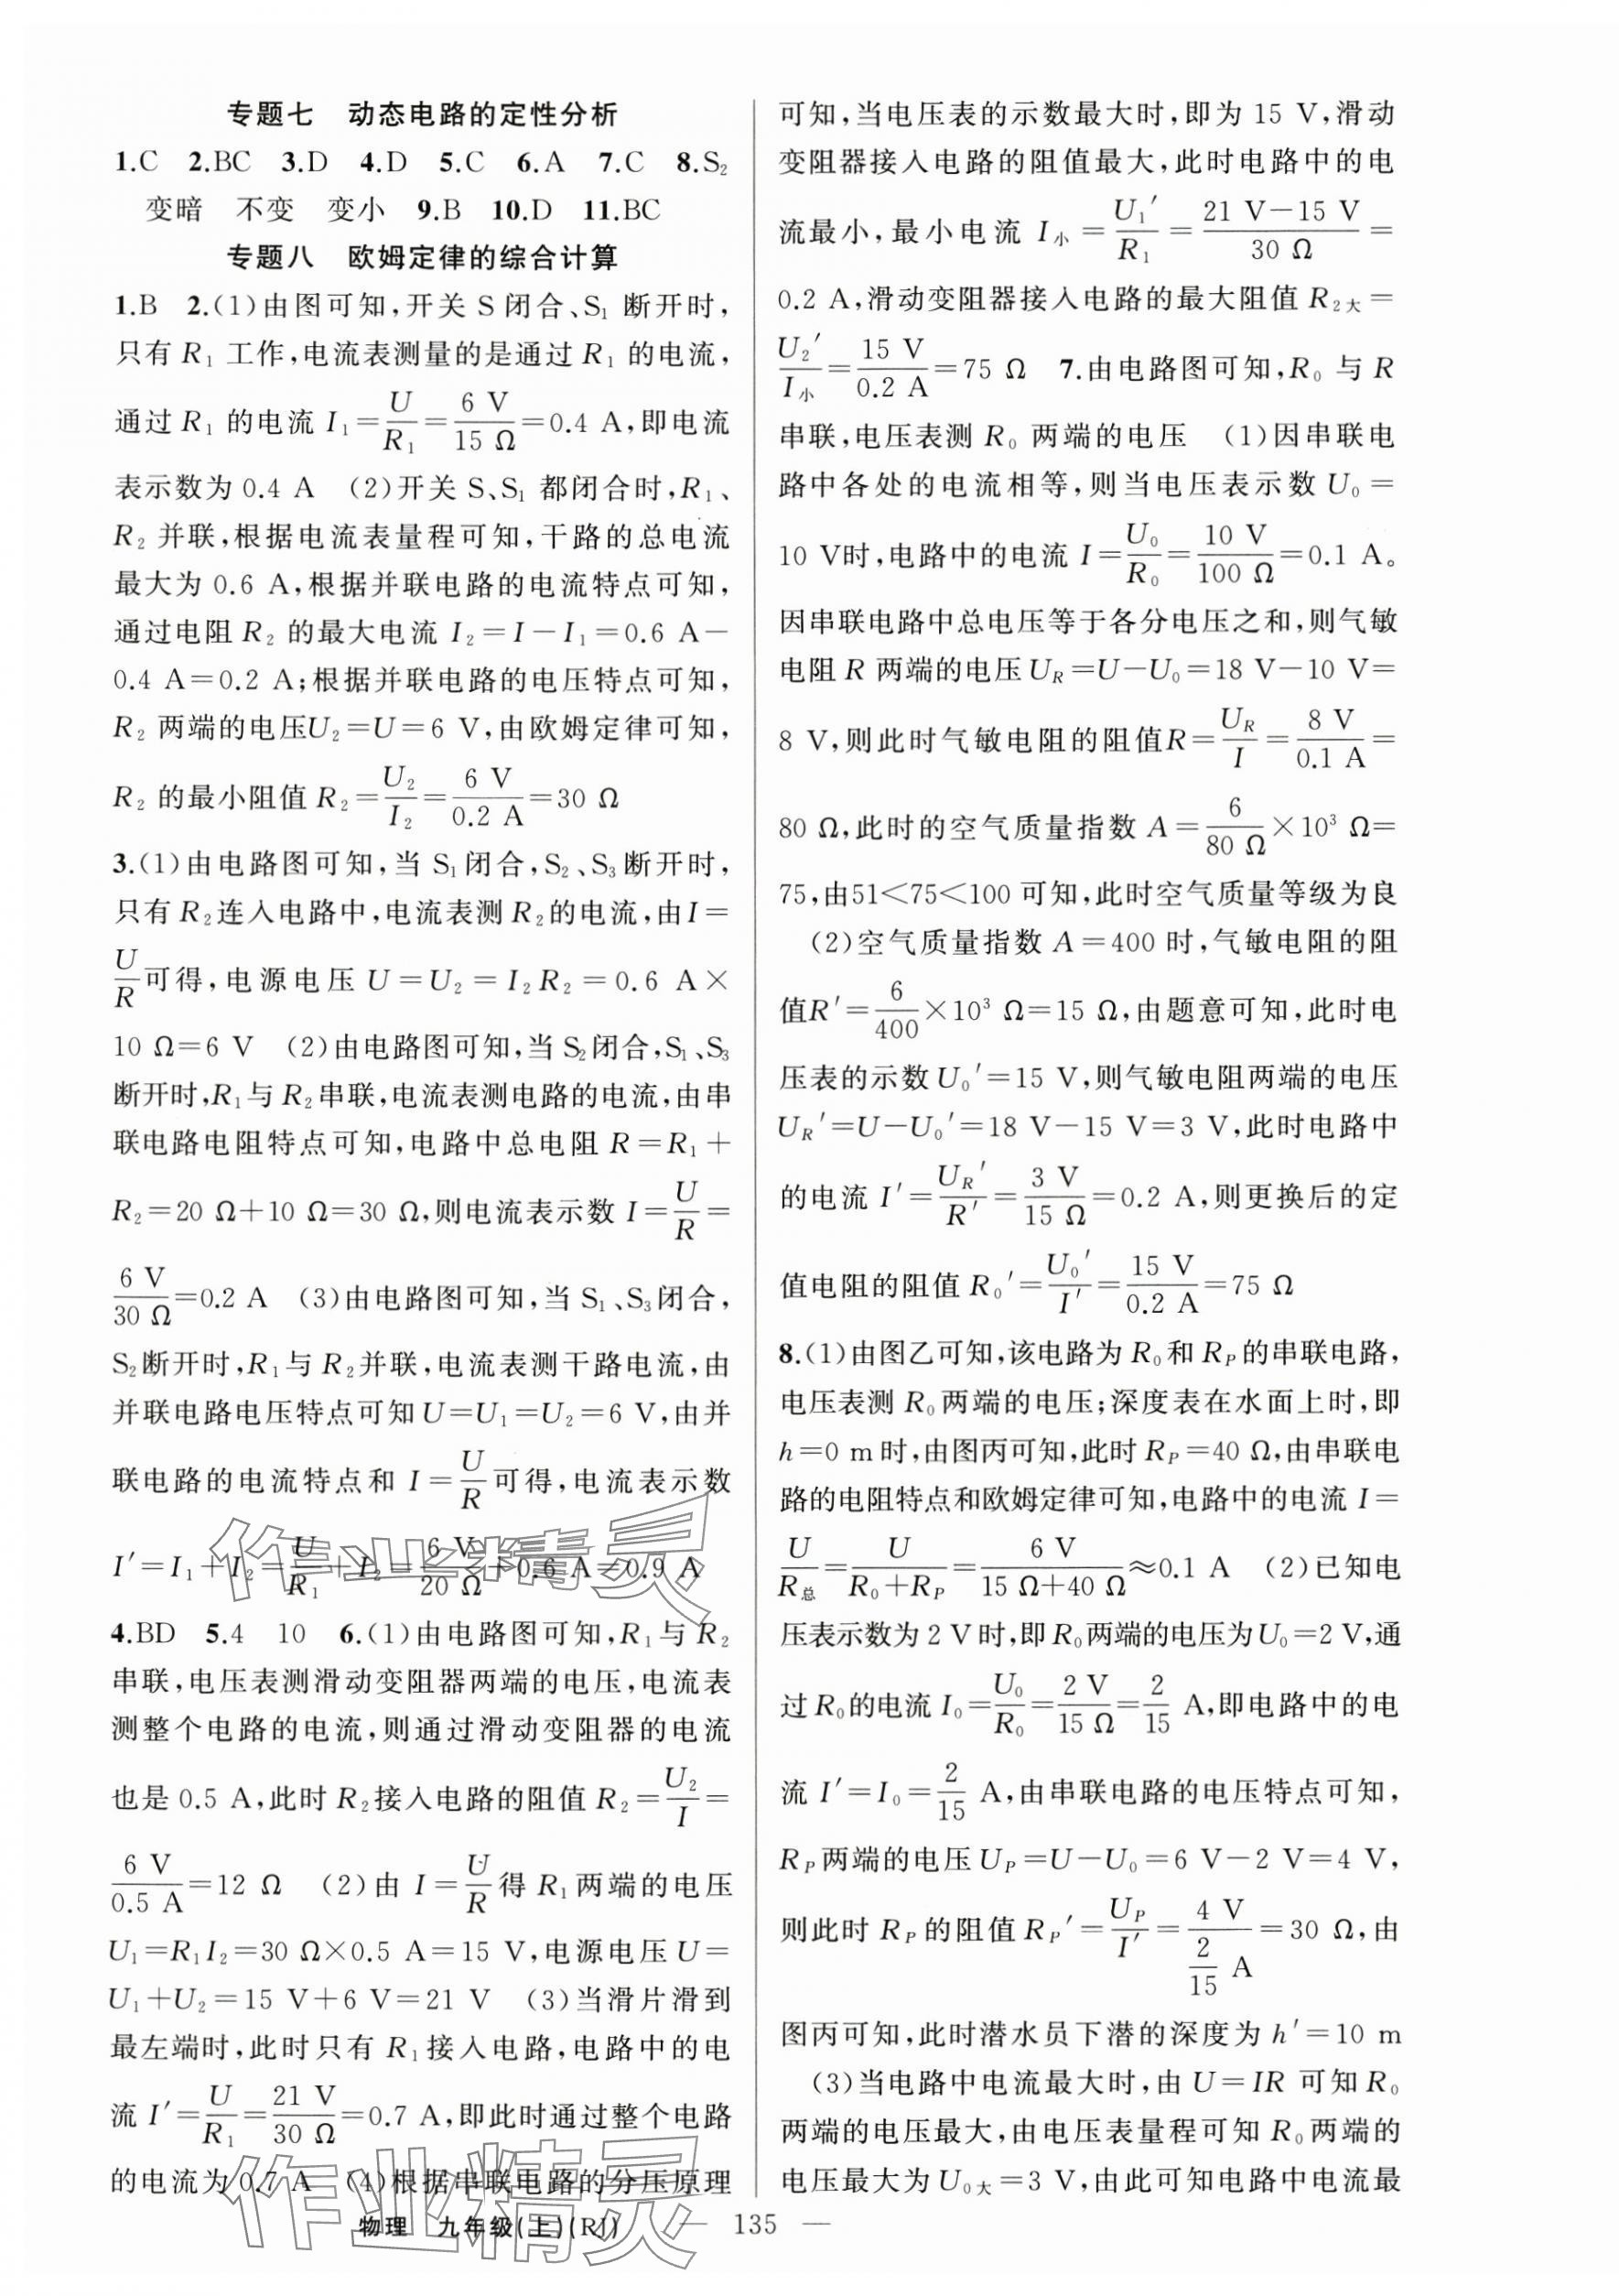 专题七　动态电路的定性分析
1.C　2.BC　3.D　4.D　5.C　6.A　7.C　8.S₂
变暗　不变　变小　9.B　10.D　11.BC
专题八　欧姆定律的综合计算
1.B　2.(1)由图可知,开关 S 闭合、S₁ 断开时,
只有 R₁ 工作,电流表测量的是通过 R₁ 的电流,
通过 R₁ 的电流 I₁=U/R₁=6 V/15 Ω=0.4 A,即电流
表示数为 0.4 A　(2)开关 S、S₁ 都闭合时,R₁、
R₂ 并联,根据电流表量程可知,干路的总电流
最大为 0.6 A,根据并联电路的电流特点可知,
通过电阻 R₂ 的最大电流 I₂=I-I₁=0.6 A-
0.4 A=0.2 A;根据并联电路的电压特点可知,
R₂ 两端的电压U₂=U=6 V,由欧姆定律可知,
R₂ 的最小阻值 R₂=U₂/I₂=6 V/0.2 A=30 Ω
3.(1)由电路图可知,当 S₁闭合,S₂、S₃断开时,
只有 R₂连入电路中,电流表测 R₂的电流,由I=
U/R可得,电源电压 U=U₂=I₂R₂=0.6 A×
10 Ω=6 V　(2)由电路图可知,当 S₂闭合,S₁、S₃
断开时,R₁与 R₂串联,电流表测电路的电流,由串
联电路电阻特点可知,电路中总电阻 R=R₁+
R₂=20 Ω+10 Ω=30 Ω,则电流表示数 I=U/R=
6 V/30 Ω=0.2 A　(3)由电路图可知,当 S₁、S₃闭合,
S₂断开时,R₁与 R₂并联,电流表测干路电流,由
并联电路电压特点可知U=U₁=U₂=6 V,由并
联电路的电流特点和 I=U/R可得,电流表示数
I′=I₁+I₂=U/R₁+I₂=6 V/20 Ω+0.6 A=0.9 A
4.BD　5.4　10　6.(1)由电路图可知,R₁与 R₂
串联,电压表测滑动变阻器两端的电压,电流表
测整个电路的电流,则通过滑动变阻器的电流
也是 0.5 A,此时 R₂接入电路的阻值 R₂=U₂/I=
6 V/0.5 A=12 Ω　(2)由 I=U/R得 R₁两端的电压
U₁=R₁I₂=30 Ω×0.5 A=15 V,电源电压 U=
U₁+U₂=15 V+6 V=21 V　(3)当滑片滑到
最左端时,此时只有 R₁接入电路,电路中的电
流 I′=U/R₁=21 V/30 Ω=0.7 A,即此时通过整个电路
的电流为 0.7 A　(4)根据串联电路的分压原理
可知,当电压表的示数最大时,即为 15 V,滑动
变阻器接入电路的阻值最大,此时电路中的电
流最小,最小电流 I小=U₁′/R₁=21 V-15 V/30 Ω=
0.2 A,滑动变阻器接入电路的最大阻值 R₂大=
U₂′/I小=15 V/0.2 A=75 Ω　7.由电路图可知,R₀ 与 R
串联,电压表测 R₀ 两端的电压　(1)因串联电
路中各处的电流相等,则当电压表示数 U₀=
10 V时,电路中的电流 I=U₀/R₀=10 V/100 Ω=0.1 A。
因串联电路中总电压等于各分电压之和,则气敏
电阻 R 两端的电压 U_R=U-U₀=18 V-10 V=
8 V,则此时气敏电阻的阻值R=U_R/I=8 V/0.1 A=
80 Ω,此时的空气质量指数 A=6/80 Ω×10³ Ω=
75,由51<75<100 可知,此时空气质量等级为良
(2)空气质量指数 A=400 时,气敏电阻的阻
值R′=6/400×10³ Ω=15 Ω,由题意可知,此时电
压表的示数 U₀′=15 V,则气敏电阻两端的电压
U_R′=U-U₀′=18 V-15 V=3 V,此时电路中
的电流 I′=U_R′/R′=3 V/15 Ω=0.2 A,则更换后的定
值电阻的阻值 R₀′=U₀′/I′=15 V/0.2 A=75 Ω
8.(1)由图乙可知,该电路为 R₀和 R_P的串联电路,
电压表测 R₀两端的电压;深度表在水面上时,即
h=0 m时,由图丙可知,此时 R_P=40 Ω,由串联电
路的电阻特点和欧姆定律可知,电路中的电流 I=
U/R总=U/R₀+R_P=6 V/15 Ω+40 Ω≈0.1 A　(2)已知电
压表示数为 2 V 时,即 R₀两端的电压为U₀=2 V,通
过 R₀的电流 I₀=U₀/R₀=2 V/15 Ω=2/15 A,即电路中的电
流 I′=I₀=2/15 A,由串联电路的电压特点可知,
R_P两端的电压 U_P=U-U₀=6 V-2 V=4 V,
则此时 R_P 的阻值 R_P′=U_P/I′=4 V/(2/15 A)=30 Ω,由
图丙可知,此时潜水员下潜的深度为 h′=10 m
(3)当电路中电流最大时,由 U=IR 可知 R₀
两端的电压最大,由电压表量程可知 R₀两端的
电压最大为 U₀大=3 V,由此可知电路中电流最
物理　九年级(上)(RJ)　— 135 —
作业精灵
作业精灵